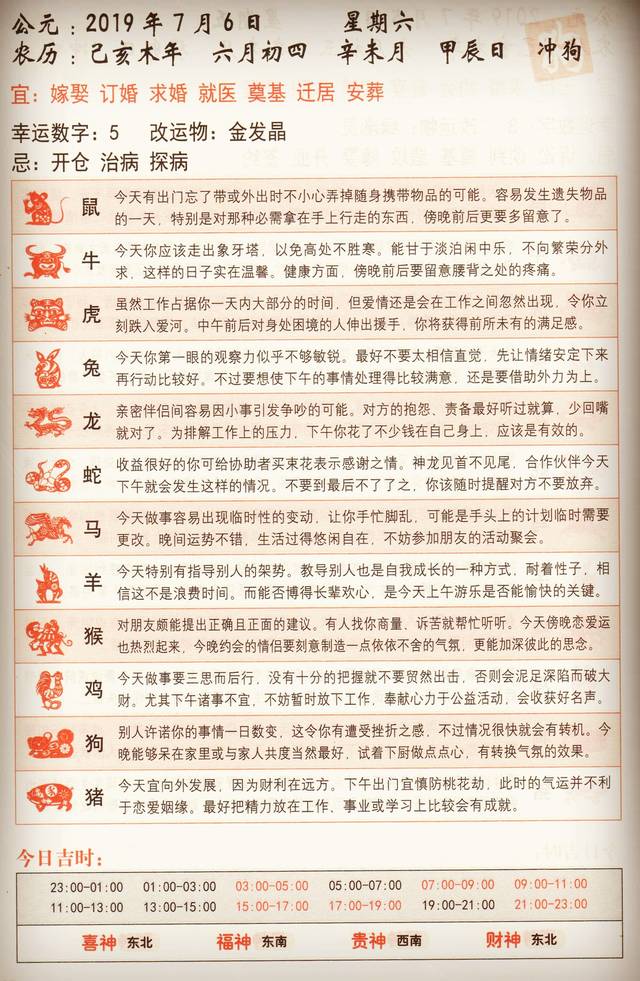 公元：2019年7月6日 星期六
农历：己亥木年 六月初四 辛未月 甲辰日 冲狗
宜：嫁娶 订婚 求婚 就医 奠基 迁居 安葬
幸运数字：5 改运物：金发晶
忌：开仓 治病 探病
鼠
今天有出门忘了带或外出时不小心弄掉随身携带物品的可能。容易发生遗失物品
的一天，特别是对那种必需拿在手上行走的东西，傍晚前后更要多留意了。
牛
今天你应该走出象牙塔，以免高处不胜寒。能甘于淡泊闲中乐，不向繁荣分外
求，这样的日子实在温馨。健康方面，傍晚前后要留意腰背之处的疼痛。
虎
虽然工作占据你一天内大部分的时间，但爱情还是会在工作之间忽然出现，令你立
刻跌入爱河。中午前后对身处困境的人伸出援手，你将获得前所未有的满足感。
兔
今天你第一眼的观察力似乎不够敏锐。最好不要太相信直觉，先让情绪安定下来
再行动比较好。不过要想使下午的事情处理得比较满意，还是要借助外力为上。
龙
亲密伴侣间容易因小事引发争吵的可能。对方的抱怨、责备最好听过就算，少回嘴
就对了。为排解工作上的压力，下午你花了不少钱在自己身上，应该是有效的。
蛇
收益很好的你可给协助者买束花表示感谢之情。神龙见首不见尾，合作伙伴今天
下午就会发生这样的情况。不要到最后不了了之，你该随时提醒对方不要放弃。
马
今天做事容易出现临时性的变动，让你手忙脚乱，可能是手头上的计划临时需要
更改。晚间运势不错，生活过得悠闲自在，不妨参加朋友的活动聚会。
羊
今天特别有指导别人的架势。教导别人也是自我成长的一种方式，耐着性子，相
信这不是浪费时间。而能否博得长辈欢心，是今天上午游乐是否能愉快的关键。
猴
对朋友颇能提出正确且正面的建议。有人找你商量、诉苦就帮忙听听。今天傍晚恋爱运
也热烈起来，今晚约会的情侣要刻意制造一点依依不舍的气氛，更能加深彼此的思念。
鸡
今天做事要三思而后行，没有十分的把握就不要贸然出击，否则会泥足深陷而破大
财。尤其下午诸事不宜，不妨暂时放下工作，奉献心力于公益活动，会收获好名声。
狗
别人许诺你的事情一日数变，这令你有遭受挫折之感，不过情况很快就会有转机。今
晚能够呆在家里或与家人共度当然最好，试着下厨做点点心，有转换气氛的效果。
猪
今天宜向外发展，因为财利在远方。下午出门宜慎防桃花劫，此时的气运并不利
于恋爱姻缘。最好把精力放在工作、事业或学习上比较会有成就。
今日吉时：
23:00-01:00 01:00-03:00 03:00-05:00 05:00-07:00 07:00-09:00 09:00-11:00
11:00-13:00 13:00-15:00 15:00-17:00 17:00-19:00 19:00-21:00 21:00-23:00
喜神 东北 福神 东南 贵神 西南 财神 东北